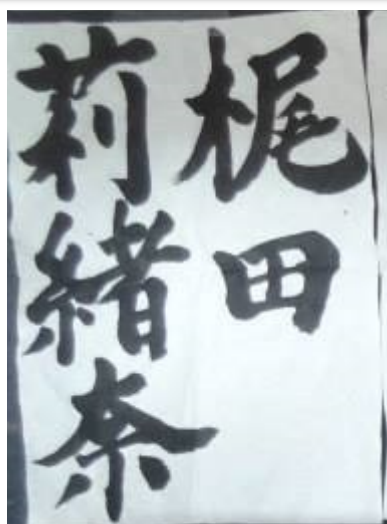 梶田
莉緒奈